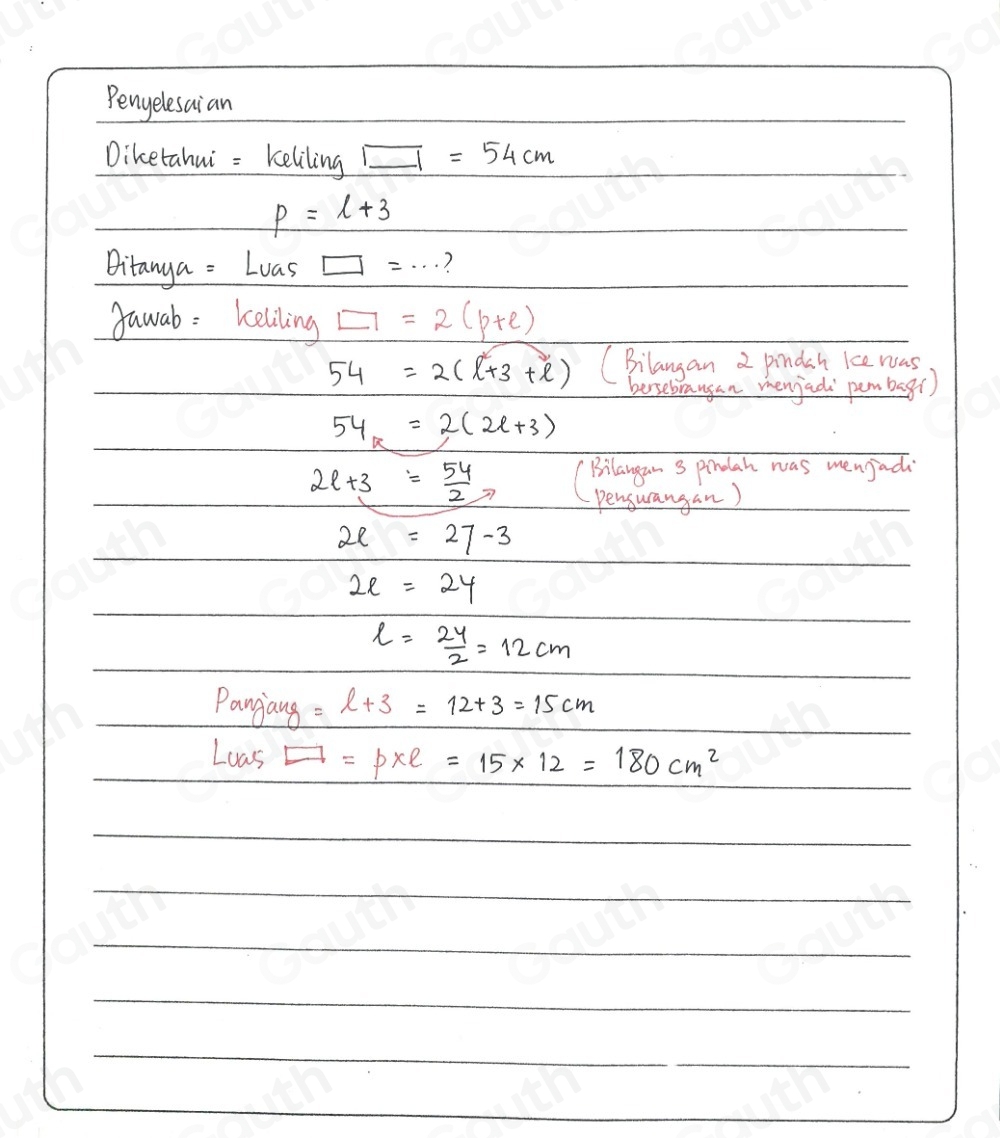 Penyelesaian
Diketahui = keliling ▭ = 54 cm
p = l+3
Ditanya = Luas ▭ = ...?
Jawab = keliling ▭ = 2 (p+l)
54 = 2 (l+3 +l) (Bilangan 2 pindah ke ruas
bersebrangan menjadi pembagi)
54 = 2 (2l+3)
2l+3 = 54/2 (Bilangan 3 pindah ruas menjadi
pengurangan)
2l = 27-3
2l = 24
l = 24/2 = 12 cm
Panjang = l+3 = 12+3 = 15 cm
Luas ▭ = p×l = 15 × 12 = 180 cm²
Gauth